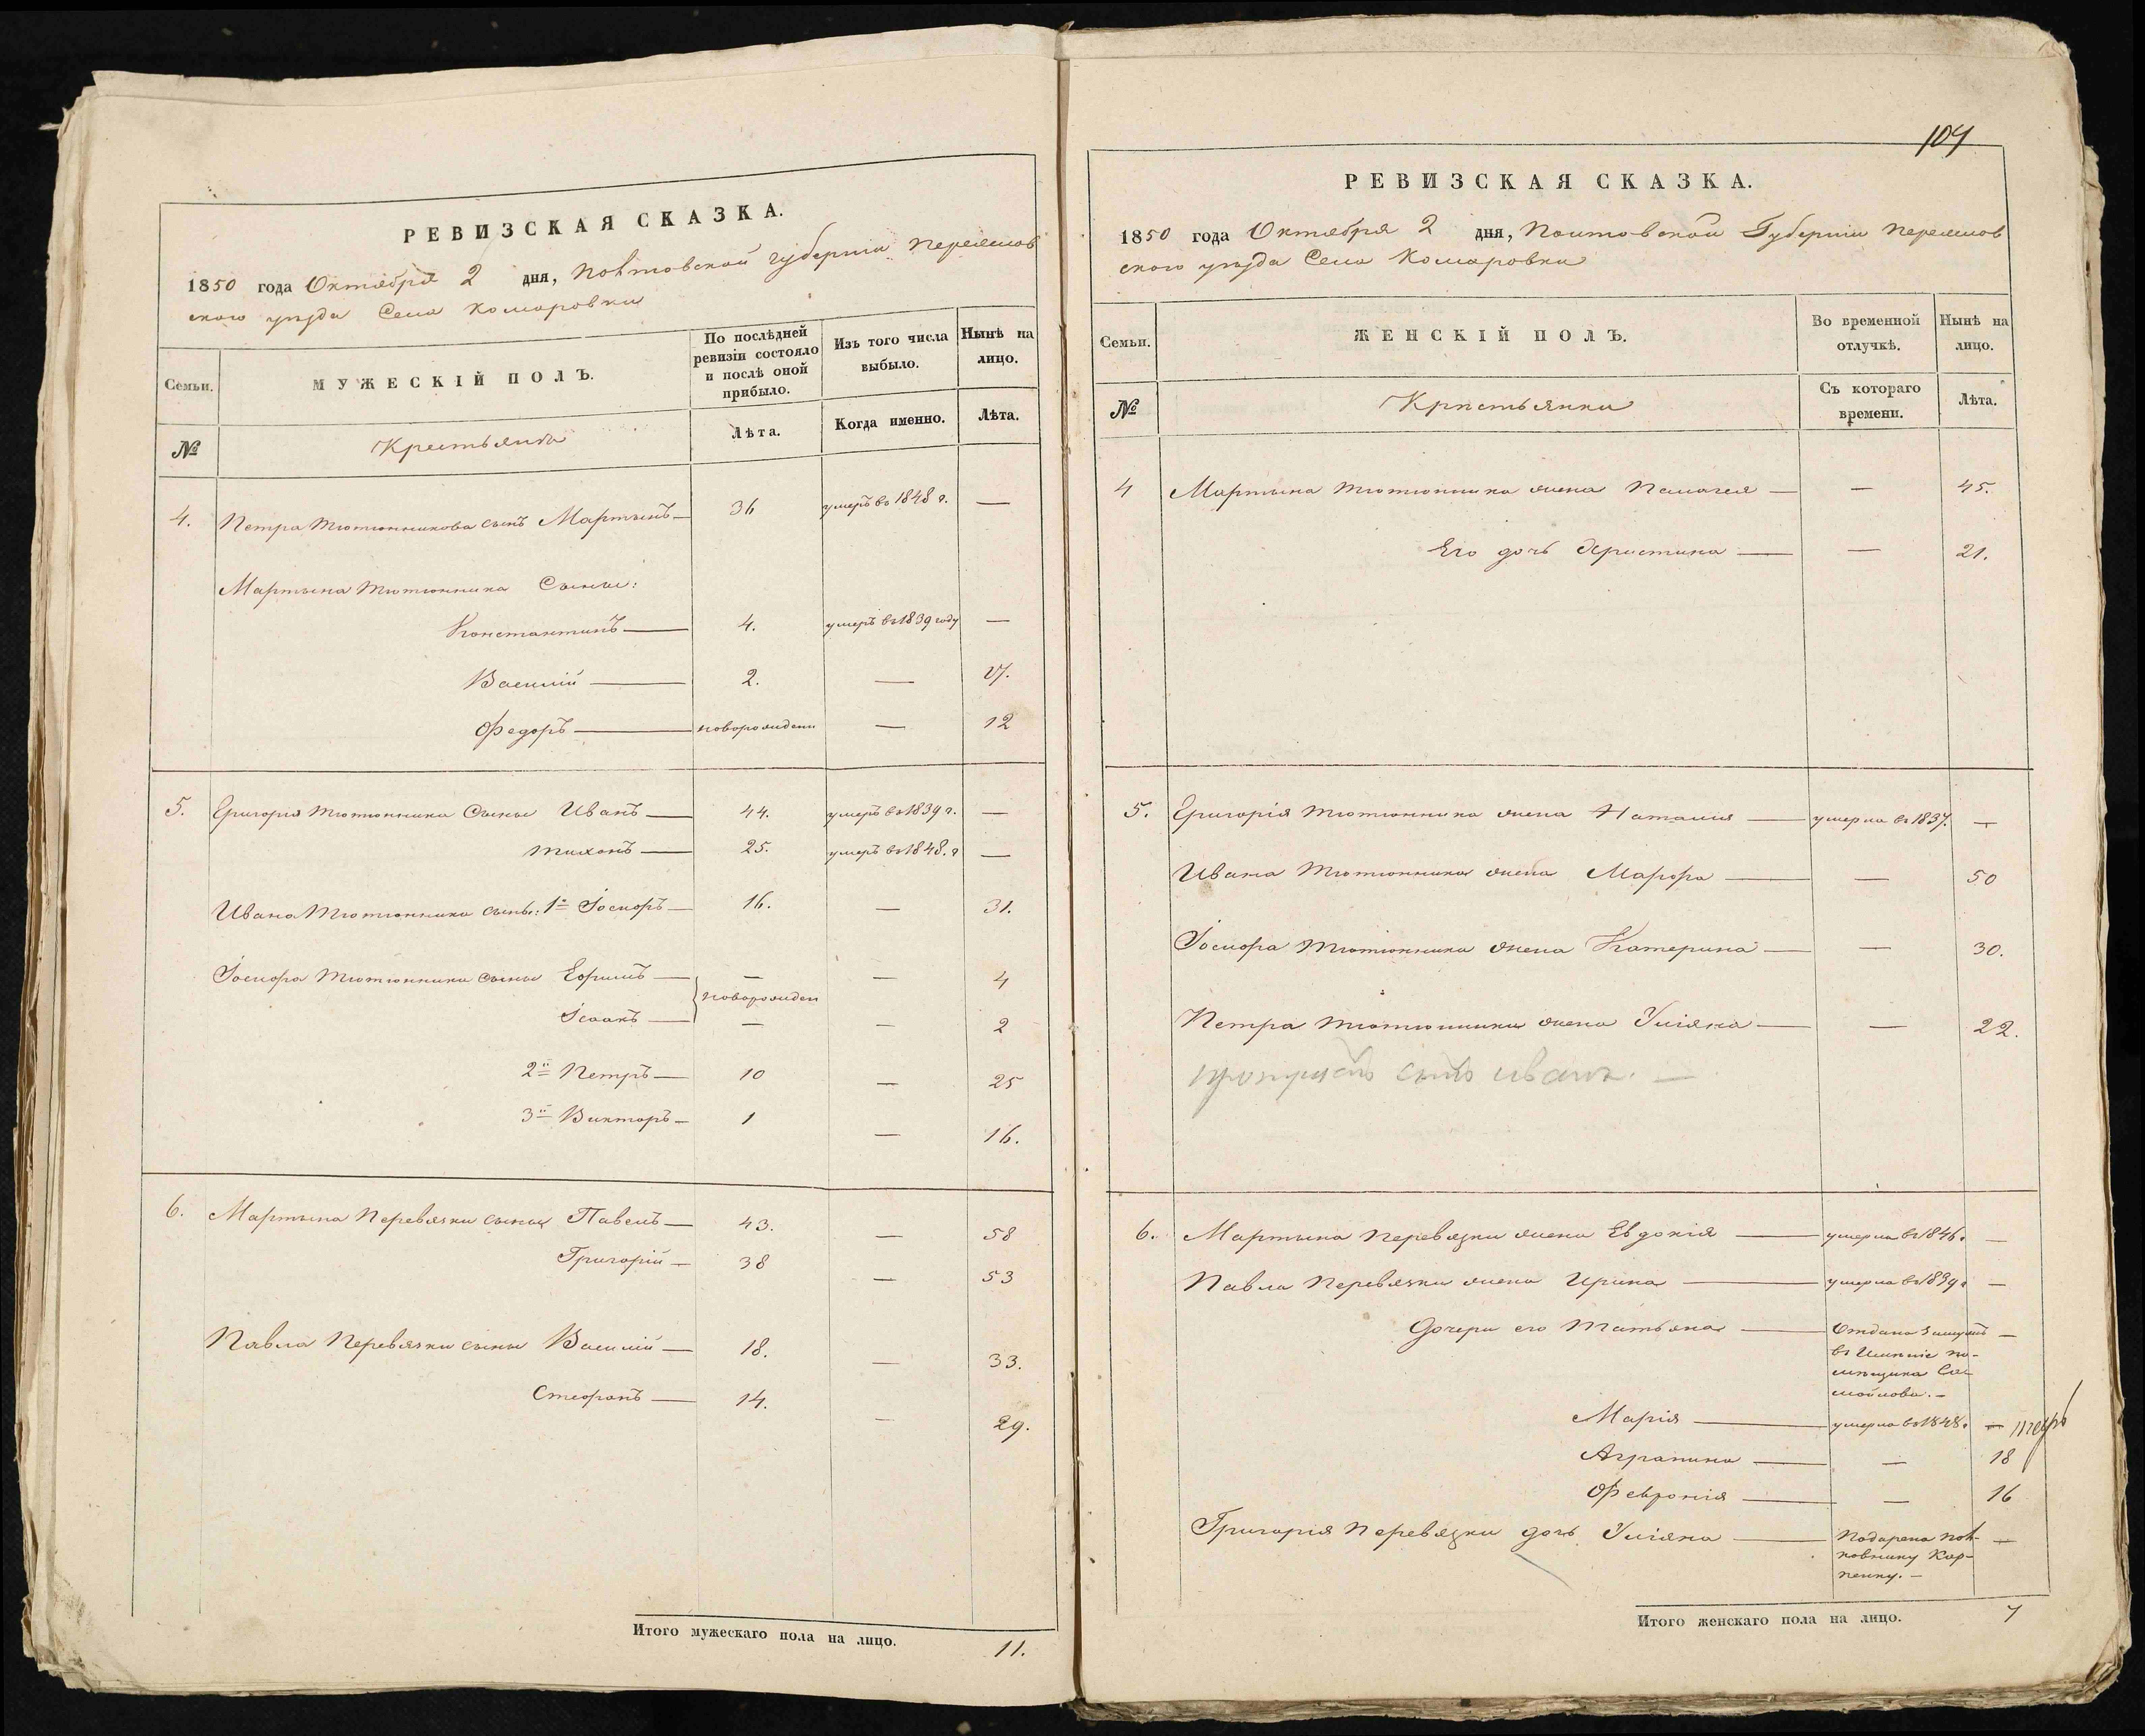 РЕВИЗСКАЯ СКАЗКА.
1850 года Октября 2 дня, Полтавской губерніи Переяслов
ского уезда Села Комаровки
Семьи. МУЖЕСКІЙ ПОЛЪ. По послѣдней ревизіи состояло и послѣ оной прибыло. Изъ того числа выбыло. Нынѣ на лицо.
№ Крестьяне Лѣта. Когда именно. Лѣта.
4. Петра Тютюнникова сынъ Мартынъ — 36 умеръ въ 1848 г. —
Мартына Тютюнника Сыны:
Константинъ — 4. умеръ въ 1839 году —
Василій — 2. — 17.
Федоръ — новорожден — 12
5. Григорія Тютюнника Сыны Иванъ — 44. умеръ въ 1839 г. —
Тихонъ — 25. умеръ въ 1848. г —
Ивана Тютюнника сыны: 1й Іосифъ — 16. — 31.
Іосифа Тютюнника сыны Ефимъ — — — 4
новорожден
Ісаакъ — — — 2
2й Петръ — 10 — 25
3й Викторъ — 1 — 16.
6. Мартына Перевязки сыны Павелъ — 43. — 58
Григорій — 38 — 53
Павла Перевязки сыны Василій — 18. — 33.
Стефанъ — 14. — 29.
Итого мужескаго пола на лицо. 11.
104
РЕВИЗСКАЯ СКАЗКА.
1850 года Октября 2 дня, Полтавской Губерніи Переяслов
ского уезда Села Комаровки
Семьи. ЖЕНСКІЙ ПОЛЪ. Во временной отлучкѣ. Нынѣ на лицо.
№ Крестьянки Съ котораго времени. Лѣта.
4 Мартына Тютюнника жена Пелагея — — 45.
Его дочь Христина — — 21.
5. Григорія Тютюнника жена Наталия — умерла въ 1837. —
Ивана Тютюнника жена Марфа — — 50
Іосифа Тютюнника жена Катерина — — 30.
Петра Тютюнника жена Уліяна — — 22.
сынъ иванъ. —
6. Мартына Перевязки жена Евдокія — умерла въ 1846. —
Павла Перевязки жена Ирина — умерла въ 1839г —
Дочери его Татьяна — Отдана замужъ —
въ Имѣніе по-
мѣщика Са-
мойлова. —
Марія — умерла въ 1848. —
Аграпина — — 18
Февронія — — 16
Григорія Перевязки дочь Уліяна — Подарена пол- —
ковнику Кар-
пенку. —
Итого женскаго пола на лицо. 7